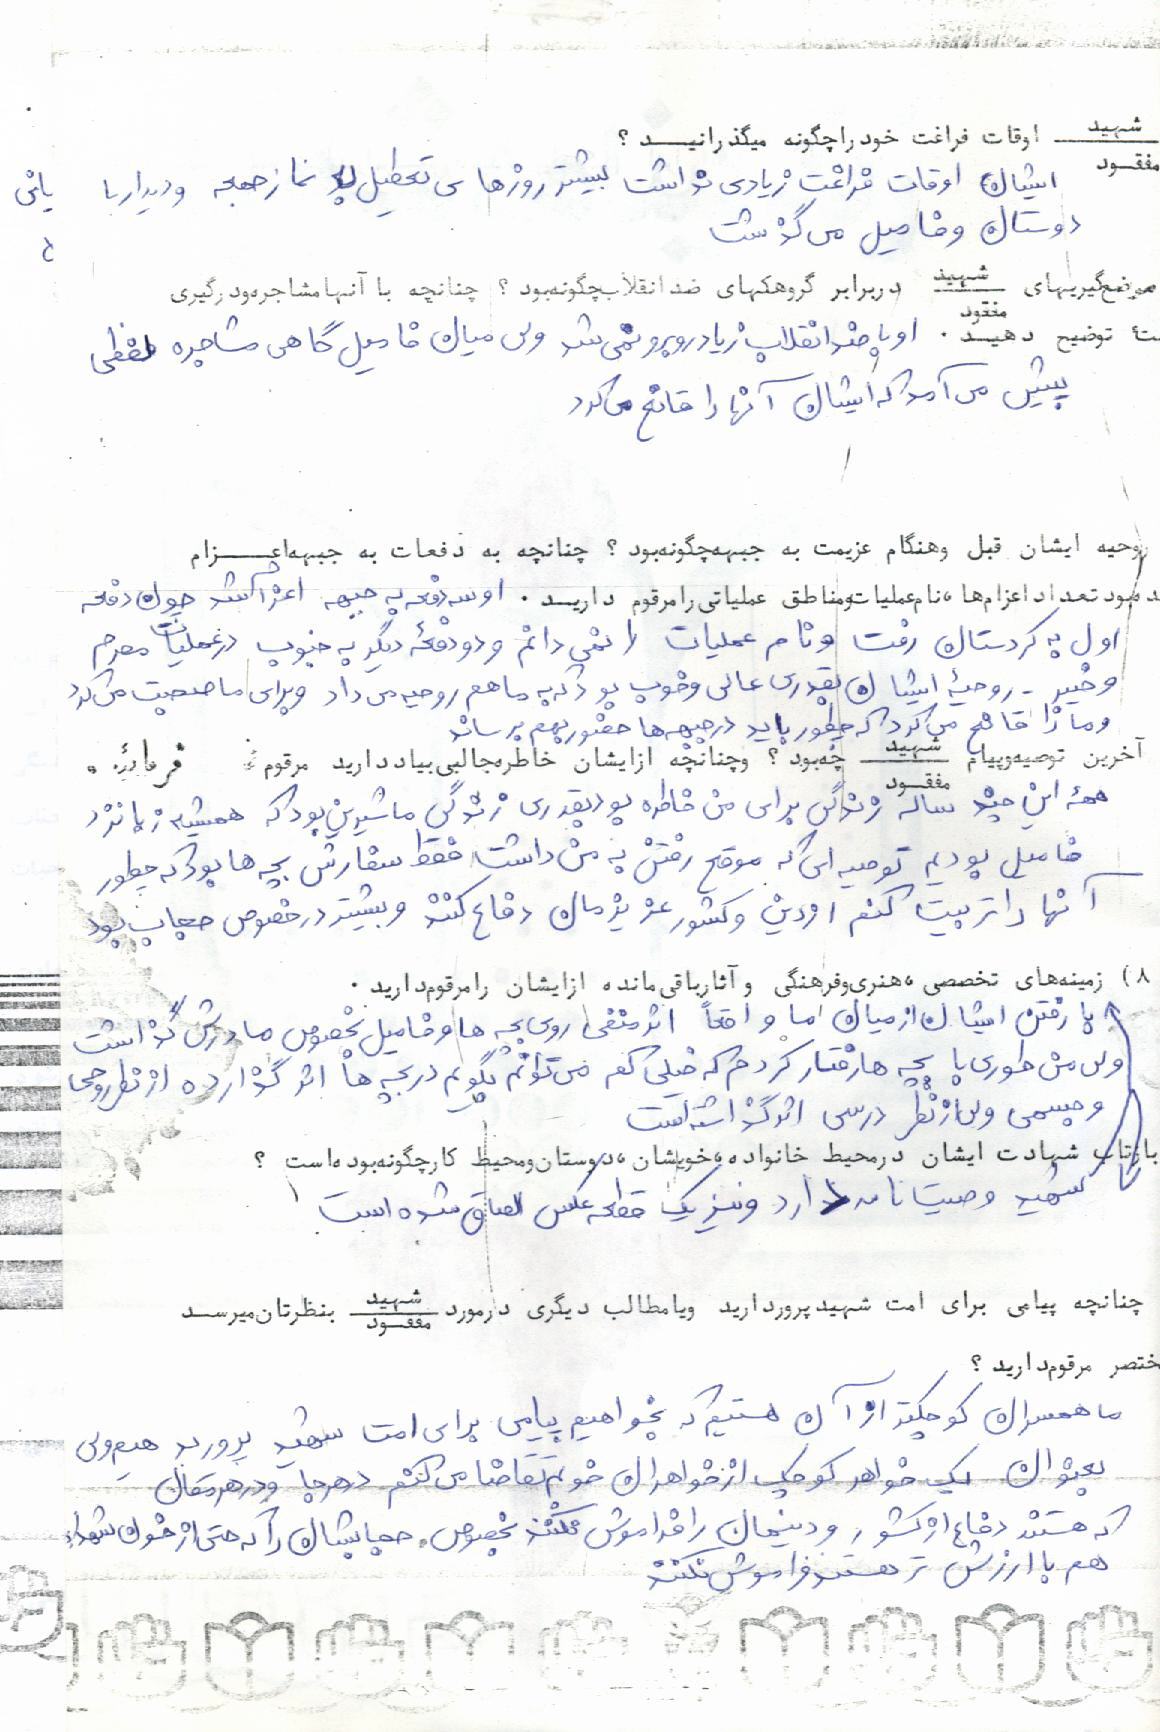 شهید
مفقود اوقات فراغت خود را چگونه میگذرانید ؟
ایشان اوقات فراغت زیادی نداشت بیشتر روزهای تعطیل به نماز جمعه و دیدار با
دوستان و فامیل می گذشت
موضع‌گیریهای شهید مفقود در برابر گروهکهای ضد انقلاب چگونه بود ؟ چنانچه با آنها مشاجره و درگیری
توضیح دهید . او با ضد انقلاب زیاد روبرو نمی شد ولی میان فامیل گاهی مشاجره لفظی
پیش می آمد که ایشان آنها را قانع می کرد
روحیه ایشان قبل وهنگام عزیمت به جبهه چگونه بود ؟ چنانچه به دفعات به جبهه اعزام
تعداد اعزام‌ها ، نام عملیات و مناطق عملیاتی را مرقوم دارید . او سه دفعه به جبهه اعزام شد چون دفعه
اول به کردستان رفت و نام عملیات را نمی دانم و دو دفعهٔ دیگر به جنوب در عملیات محرم
و خیبر - روحیهٔ ایشان بقدری عالی و خوب بود که به ما هم روحیه می داد و برای ما صحبت می کرد
و ما را قانع می کرد که چطور باید در جبهه ها حضور بهم برساند
آخرین توصیه و پیام شهید مفقود چه بود ؟ و چنانچه از ایشان خاطره جالبی بیاد دارید مرقوم فرمائید .
همهٔ این چند ساله زندگی برای من خاطره بود بقدری زندگی ما شیرین بود که همیشه زبانزد
فامیل بودیم توصیه ای که موقع رفتن به من داشت فقط سفارش بچه ها بود که چطور
آنها را تربیت کنم از دین و کشور عزیزمان دفاع کنند و بیشتر در خصوص حجاب بود
۸) زمینه‌های تخصصی ، هنری و فرهنگی و آثار باقی مانده از ایشان را مرقوم دارید .
با رفتن ایشان از میان ما واقعاً اثر منفی روی بچه ها و فامیل بخصوص مادرش گذاشت
ولی من طوری با بچه ها رفتار کردم که خیلی کم می توانم بگویم در بچه ها اثر گذارده از نظر روحی
و جسمی ولی از نظر درسی اثر گذاشته است
بازتاب شهادت ایشان در محیط خانواده ، خویشان ، دوستان و محیط کار چگونه بوده است ؟
شهید وصیت نامه دارد و نیز یک قطعه عکس الصاق شده است
چنانچه پیامی برای امت شهیدپرور دارید و یا مطالب دیگری در مورد شهید مفقود بنظرتان میرسد
مرقوم دارید ؟
ما همسران کوچکتر از آن هستیم که بخواهیم پیامی برای امت شهید پرور بدهیم ولی
بعنوان یک خواهر کوچک از خواهران خودم تقاضا می کنم در هر جا و در هر مکان
که هستند دفاع از کشور و دینمان را فراموش نکنند بخصوص حجابشان را که حتی از خون شهداء
هم با ارزش تر هست فراموش نکنند